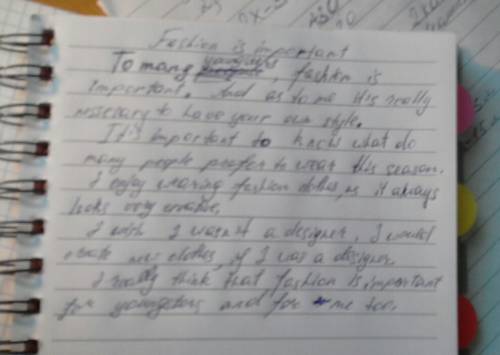 Fashion is important
To many youngsters, fashion is
important. And as to me it's really
necessary to have your own style.
It is important to know what do
many people prefer to wear this season.
I enjoy wearing fashion clothes, as it always
looks very creative.
I wish I wasn't a designer, I would
create new clothes, if I was a designer.
I really think that fashion is important
for youngsters and for me too.